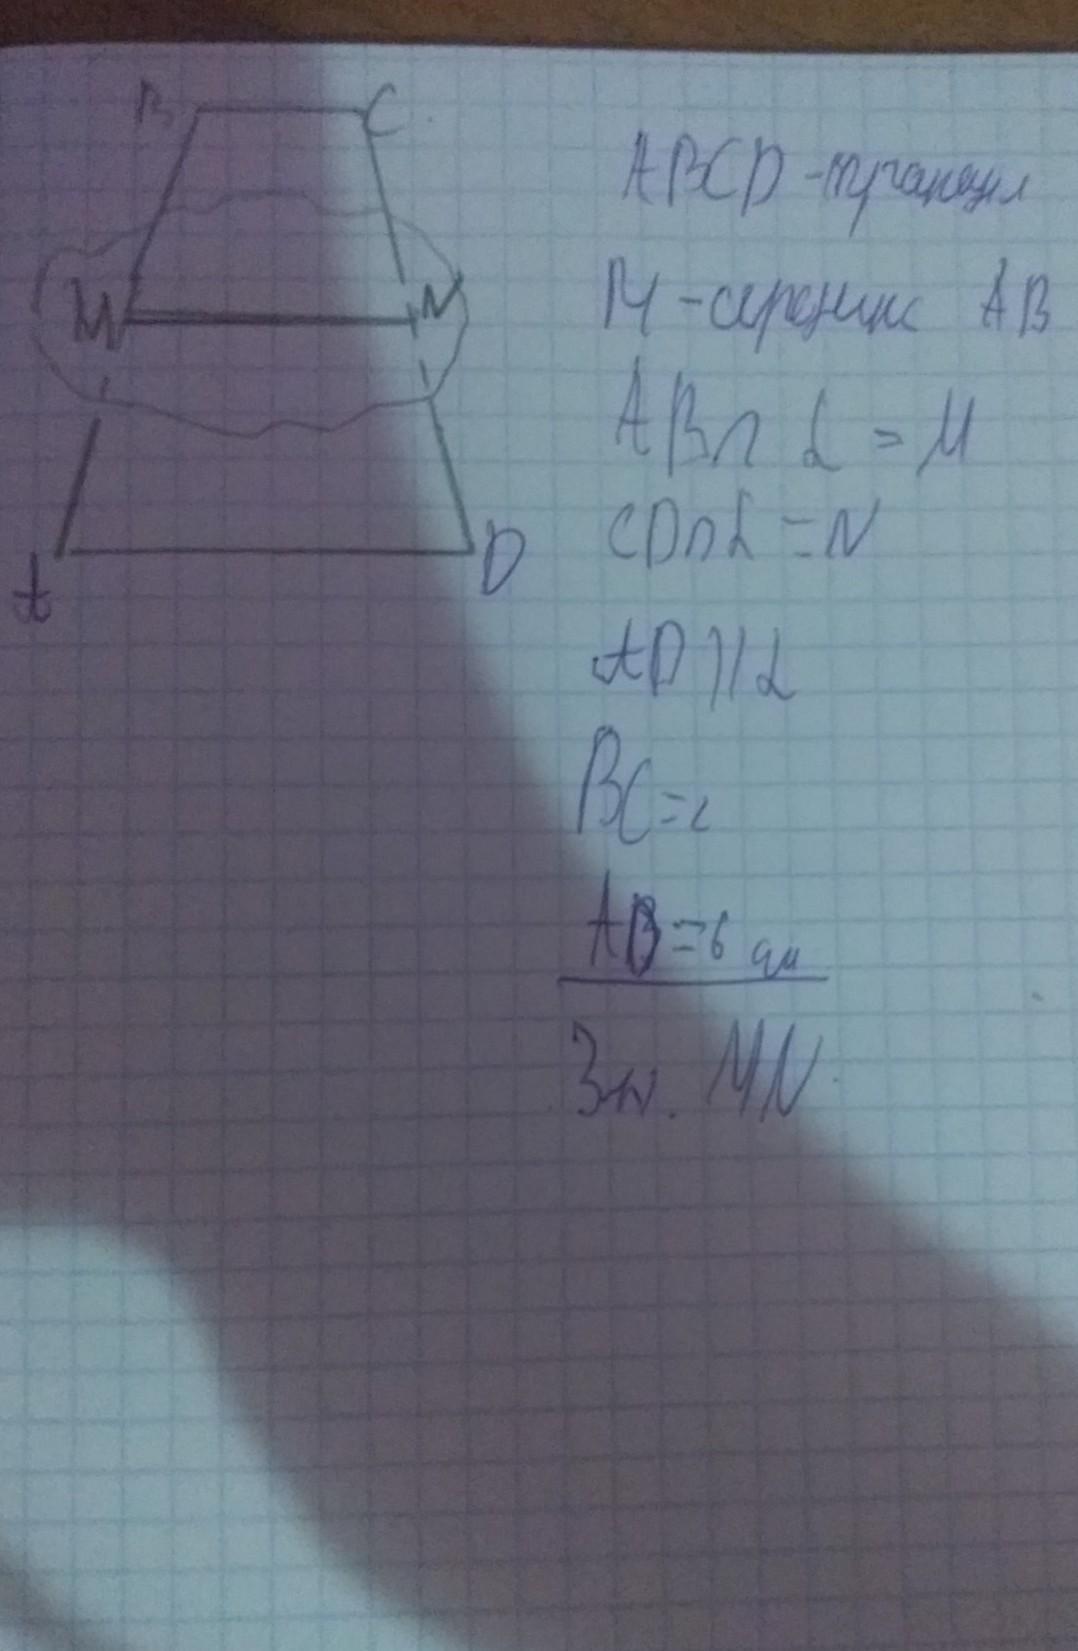 B C
M N
A D
ABCD - трапеція
M - середина AB
AB ∩ α = M
CD ∩ α = N
AD || α
BC = 2
AB = 6 см
Зн. MN